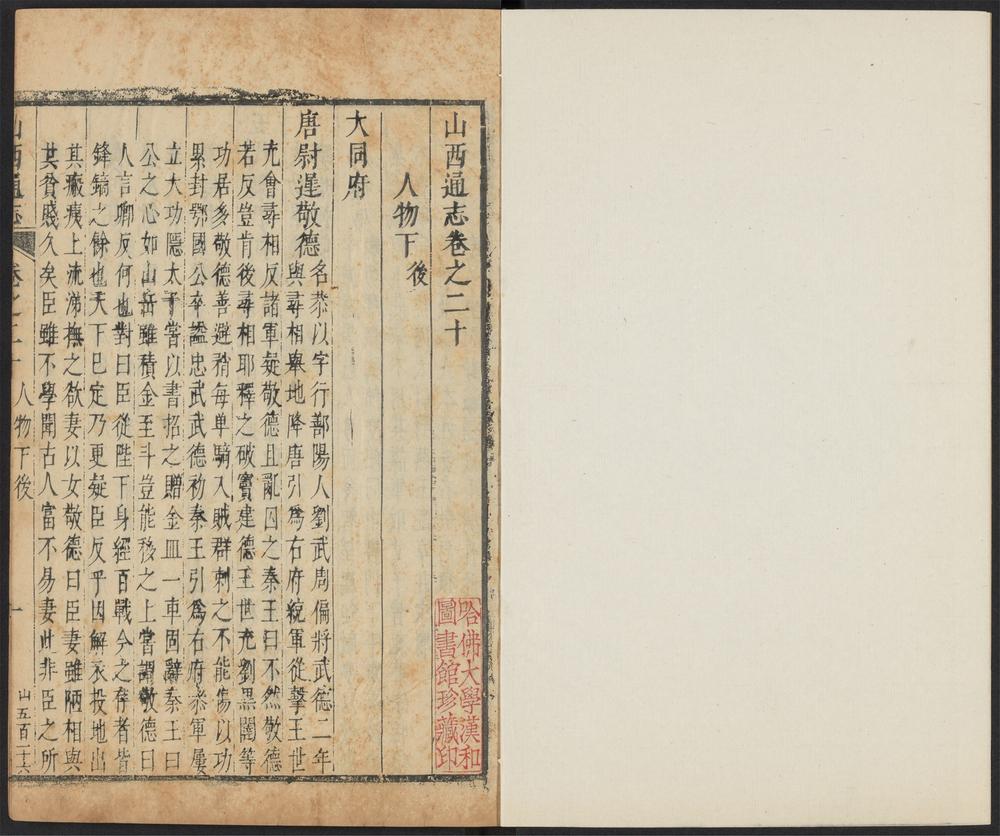 山西通志卷之二十
人物下後
大同府
唐尉遲敬德名恭以字行鄯陽人劉武周偏將武德二年
與尋相舉地降唐引爲右府統軍從擊王世
充會尋相反諸軍疑敬德且亂囚之秦王曰不然敬德
若反豈肯後尋相耶釋之破竇建德王世充劉黑闥等
功居多敬德善避矟每单騎入賊群刺之不能傷以功
累封鄂國公卒謚忠武武德初秦王引爲右府叅軍屢
立大功隱太子嘗以書招之贈金皿一車固辭秦王曰
公之心如山岳雖積金至斗豈能移之上嘗謂敬德曰
人言卿反何也對曰臣從陛下身經百戰今之存者皆
鋒鏑之餘也天下已定乃更疑臣反乎因解衣投地出
其瘢痍上流涕撫之欲妻以女敬德曰臣妻雖陋相與
共貧賤久矣臣雖不學聞古人富不易妻此非臣之所
山西通志
卷之二十
人物下後
一
山五百二十六
哈佛大學漢和
圖書館珍藏印